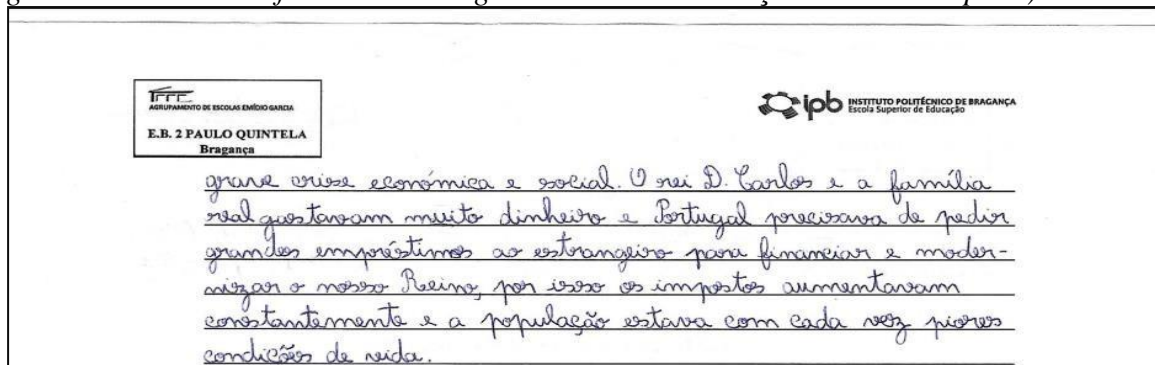 AGRUPAMENTO DE ESCOLAS EMÍDIO GARCIA
E.B. 2 PAULO QUINTELA
Bragança
ipb INSTITUTO POLITÉCNICO DE BRAGANÇA
Escola Superior de Educação
grave crise económica e social. O rei D. Carlos e a família
real gastavam muito dinheiro e Portugal precisava de pedir
grandes empréstimos ao estrangeiro para financiar e moder-
nizar o nosso Reino, por isso os impostos aumentavam
constantemente e a população estava com cada vez piores
condições de vida.